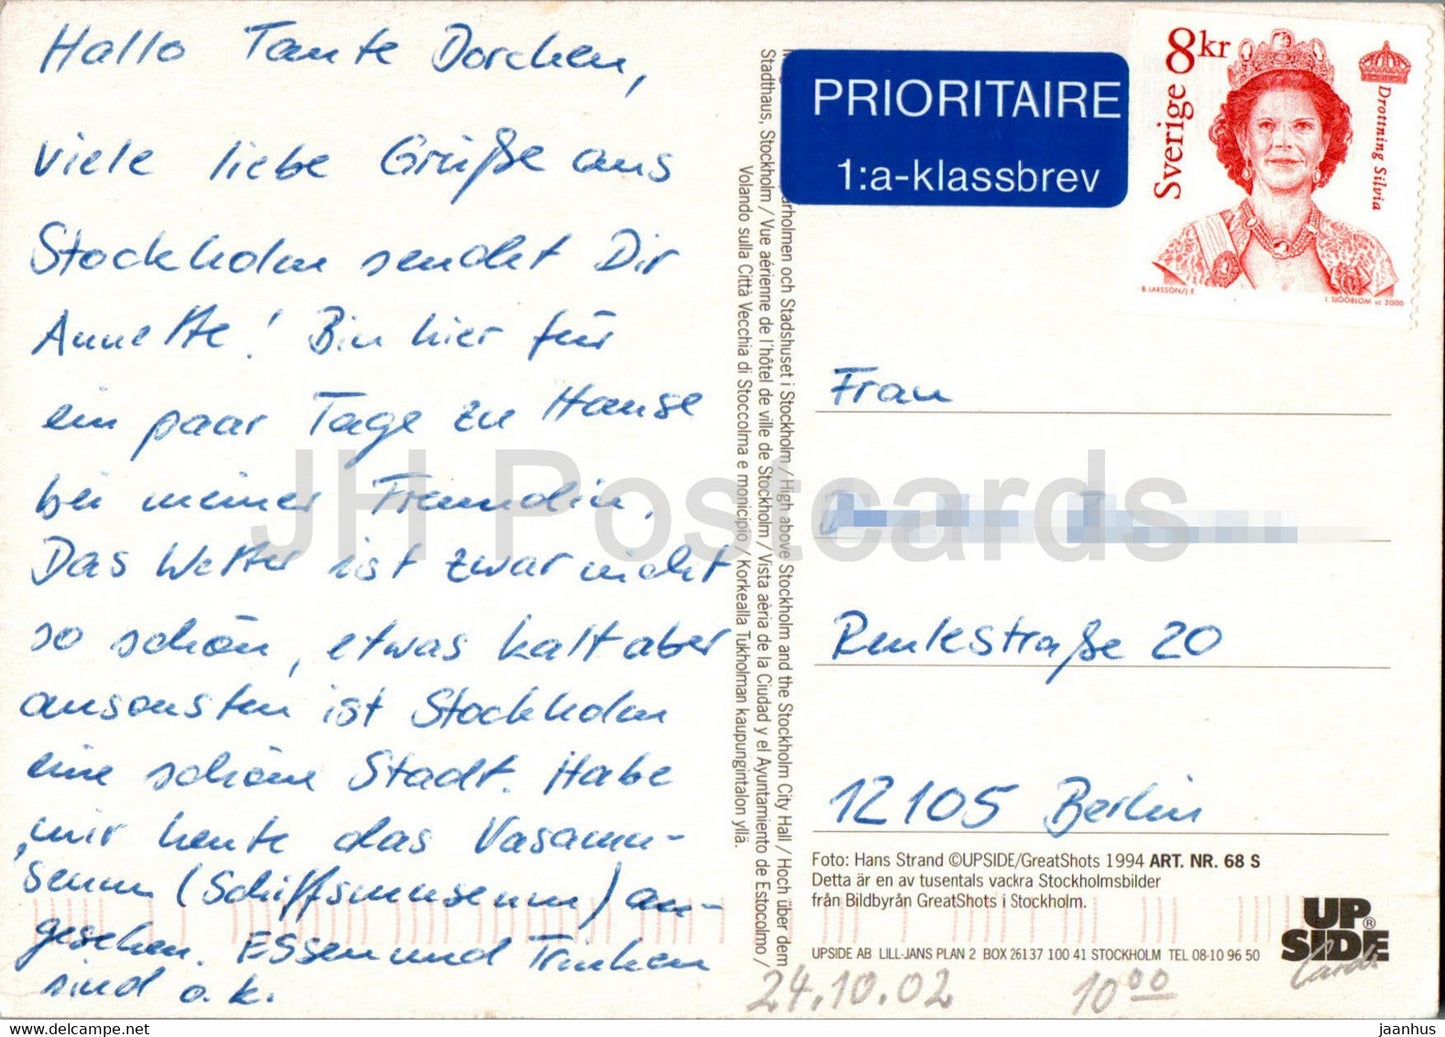 Hallo Tante Dorchen,
viele liebe Grüße aus
Stockholm sendet Dir
Annette! Bin hier für
ein paar Tage zu Hause
bei meiner Freundin.
Das Wetter ist zwar nicht
so schön, etwas kalt aber
ansonsten ist Stockholm
eine schöne Stadt. Habe
mir heute das Vasamu-
seum (Schiffsmuseum) an-
gesehen. Essen und Trinken
sind o.k.
PRIORITAIRE
1:a-klassbrev
Sverige 8kr
Drottning Silvia
B LARSSON/J E
L SJÖÖBLOM sc 2000
årholmen och Stadshuset i Stockholm / High above Stockholm and the Stockholm City Hall / Hoch über dem
Stadthaus, Stockholm / Vue aérienne de l'hôtel de ville de Stockholm / Vista aèria de la Ciudad y el Ayuntamiento de Estocolmo /
Volando sulla Città Vecchia di Stoccolma e municipio / Korkealla Tukholman kaupungintalon yllä.
Frau
Renkestraße 20
12105 Berlin
Foto: Hans Strand ©UPSIDE/GreatShots 1994 ART. NR. 68 S
Detta är en av tusentals vackra Stockholmsbilder
från Bildbyrån GreatShots i Stockholm.
UPSIDE AB LILL-JANS PLAN 2 BOX 26137 100 41 STOCKHOLM TEL 08-10 96 50
UP®
SIDE
Cards
24.10.02
10 00
JH Postcards
jaanhus ▸